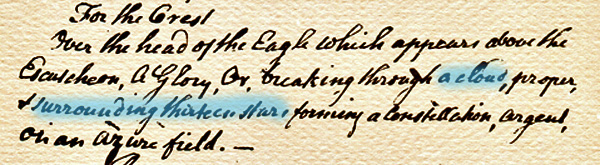 For the Crest
Over the head of the Eagle which appears above the
Escutcheon, A Glory, Or, breaking through a cloud, proper,
& surrounding thirteen stars forming a Constellation, argent,
on an azure field. —